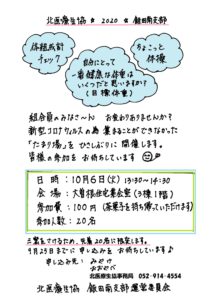 北医療生協 ☆ 2020 ☆ 飯田南支部
体組成計
チェック
ちょこっと
体操
自分にとって
一番健康な体重は
いくつだと思いますか？
（目標体重）
組合員のみなさ～ん お変わりありませんか？
新型コロナウィルスの為 集まることができなかった
「たまり場」を ひさしぶりに 開催します。
皆様の参加を お待ちしています
日 時：10月6日(火) 13:30～14:30
会 場：大曽根住宅集会室(3棟1階)
参加費：100円（茶菓子を持ち帰っていただけます）
参加人数：20名
三蜜をさけるため、先着20名に限定します。
9月25日までに 申し込みを お待ちしています♪
申し込み先：
北医療生協事務局 052-914-4554
北医療生協 飯田南支部運営委員会